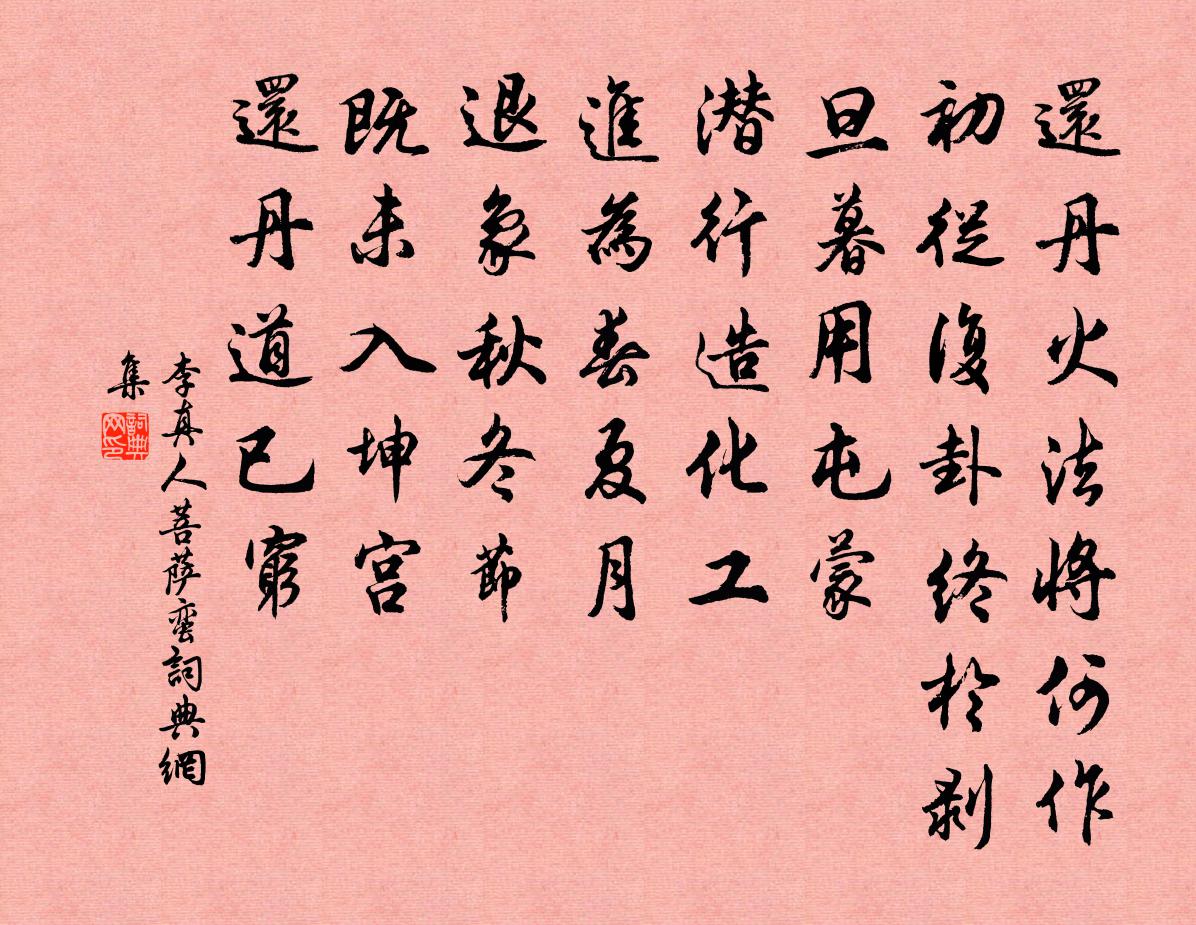 還丹火法將何作
初從復卦終於剥
旦暮用屯蒙
潜行造化工
進為春夏月
退象秋冬節
既未入坤宫
還丹道已窮
李真人菩薩蛮詞典網
集
詞典网印